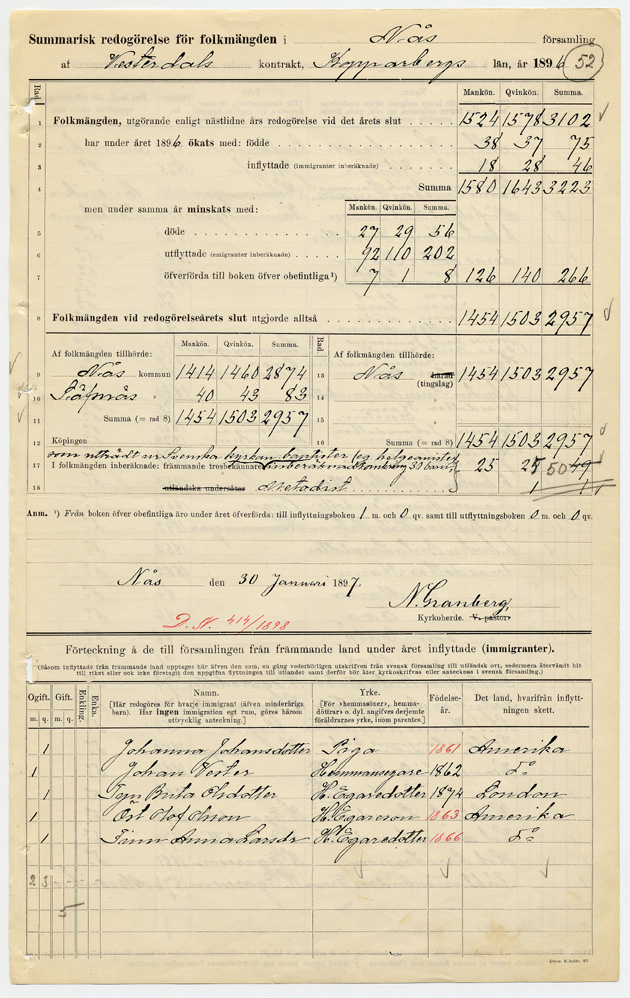 Summarisk redogörelse för folkmängden i Nås församling
af Vesterdals kontrakt, Kopparbergs län, år 1896 52
Rad. Mankön. Qvinkön. Summa.
1 Folkmängden, utgörande enligt nästlidne års redogörelse vid det årets slut 1524 1578 3102
2 har under året 1896 ökats med: födde 38 37 75
3 inflyttade (immigranter inberäknade) 18 28 46
4 Summa 1580 1643 3223
men under samma år minskats med: Mankön. Qvinkön. Summa.
5 döde 27 29 56
6 utflyttade (emigranter inberäknade) 92 110 202
7 öfverförda till boken öfver obefintliga ¹) 7 1 8 126 140 266
8 Folkmängden vid redogörelseårets slut utgjorde alltså 1454 1503 2957
Af folkmängden tillhörde: Mankön. Qvinkön. Summa. Rad. Af folkmängden tillhörde:
9 Nås kommun 1414 1460 2874 13 Nås härad (tingslag) 1454 1503 2957
10 Säfsnäs " 40 43 83 14
11 Summa (= rad 8) 1454 1503 2957 15
12 Köpingen 16 Summa (= rad 8) 1454 1503 2957
som utträdt ur Svenska kyrkan baptister
17 I folkmängden inberäknade: främmande trosbekännare 25 25 50 49
18 utländska undersåtar Metodist 1 1
Anm. ¹) Från boken öfver obefintliga äro under året öfverförda: till inflyttningsboken 1 m. och 0 qv. samt till utflyttningsboken 0 m. och 0 qv.
Nås den 30 Januari 1897.
N. Granberg,
Kyrkoherde. V. pastor.
D. N. 414/1898
Förteckning å de till församlingen från främmande land under året inflyttade (immigranter).
(Såsom inflyttade från främmande land upptages här äfven den som, en gång vederbörligen utskrifven från svensk församling till utländsk ort, sedermera återvändt hit
till riket eller ock icke företagit den uppgifna flyttningen till utlandet samt derför bör åter kyrkoskrifvas eller antecknas i svensk församling.)
Ogift. Gift. Enkling. Enka. Namn. Yrke. Födelse- Det land, hvarifrån inflytt-
m. q. m. q. [Här redogöres för hvarje immigrant (äfven minderåriga [För »hemmasöner», hemma- år. ningen skett.
barn). Har ingen immigration egt rum, göres härom döttrar» o. dyl. angifves derjemte
uttrycklig anteckning.] föräldrarnes yrke, inom parentes.]
1 Johanna Johansdotter Piga 1861 Amerika
1 Johan Vester Hemmansegare 1862 do
1 Brita Olsdotter H. Egaredotter 1874 London
1 Öst Olof Olsson H. Egareson 1863 Amerika
1 Finn Anna Larsdr H. Egaredotter 1866 do
2 3 - - - -
5